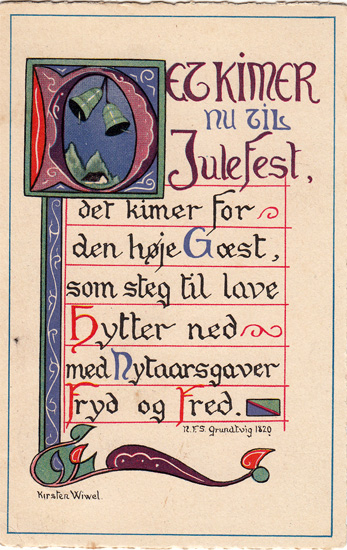 Det kimer
nu til
Julefest,
det kimer for
den høje Gæst,
som steg til lave
Hytter ned
med Nytaarsgaver
Fryd og Fred.
N.F.S. Grundtvig 1820
Kirsten Wiwel.